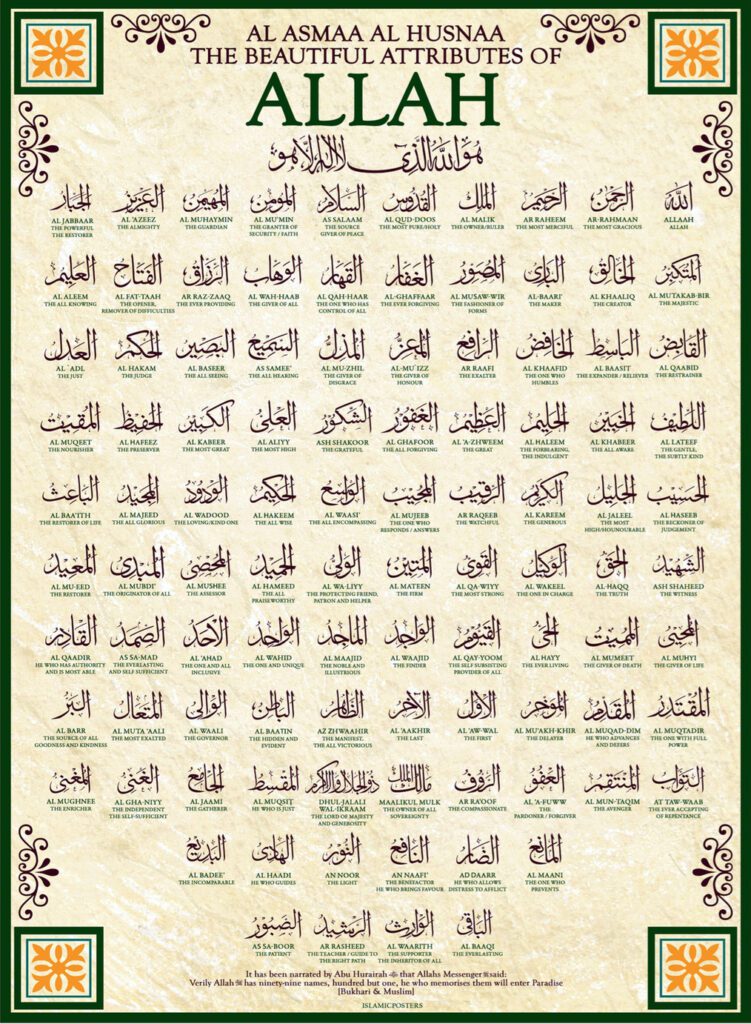 AL ASMAA AL HUSNAA
THE BEAUTIFUL ATTRIBUTES OF
ALLAH
هو الله الذى لا اله الا هو
الله
ALLAAH
ALLAH
الرحمن
AR-RAHMAAN
THE MOST GRACIOUS
الرحيم
AR RAHEEM
THE MOST MERCIFUL
الملك
AL MALIK
THE OWNER/RULER
القدوس
AL QUD-DOOS
THE MOST PURE/HOLY
السلام
AS SALAAM
THE SOURCE
GIVER OF PEACE
المؤمن
AL MU'MIN
THE GRANTER OF
SECURITY / FAITH
المهيمن
AL MUHAYMIN
THE GUARDIAN
العزيز
AL 'AZEEZ
THE ALMIGHTY
الجبار
AL JABBAAR
THE POWERFUL
THE RESTORER
المتكبر
AL MUTAKAB-BIR
THE MAJESTIC
الخالق
AL KHAALIQ
THE CREATOR
البارئ
AL-BAARI'
THE MAKER
المصور
AL MUSAW-WIR
THE FASHIONER OF
FORMS
الغفار
AL-GHAFFAAR
THE EVER FORGIVING
القهار
AL QAH-HAAR
THE ONE WHO HAS
CONTROL OF ALL
الوهاب
AL WAH-HAAB
THE GIVER OF ALL
الرزاق
AR RAZ-ZAAQ
THE EVER PROVIDING
الفتاح
AL FAT-TAAH
THE OPENER,
REMOVER OF DIFFICULTIES
العليم
AL ALEEM
THE ALL KNOWING
القابض
AL QAABID
THE RESTRAINER
الباسط
AL BAASIT
THE EXPANDER / RELIEVER
الخافض
AL KHAAFID
THE ONE WHO
HUMBLES
الرافع
AR RAAFI
THE EXALTER
المعز
AL-MU'IZZ
THE GIVER OF
HONOUR
المذل
AL MU-ZHIL
THE GIVER OF
DISGRACE
السميع
AS SAMEE'
THE ALL HEARING
البصير
AL BASEER
THE ALL SEEING
الحكم
AL HAKAM
THE JUDGE
العدل
AL `ADL
THE JUST
اللطيف
AL LATEEF
THE GENTLE,
THE SUBTLY KIND
الخبير
AL KHABEER
THE ALL AWARE
الحليم
AL HALEEM
THE FORBEARING,
THE INDULGENT
العظيم
AL 'A-ZHWEEM
THE GREAT
الغفور
AL GHAFOOR
THE ALL FORGIVING
الشكور
ASH SHAKOOR
THE GRATEFUL
العلى
AL ALIYY
THE MOST HIGH
الكبير
AL KABEER
THE MOST GREAT
الحفيظ
AL HAFEEZ
THE PRESERVER
المقيت
AL MUQEET
THE NOURISHER
الحسيب
AL HASEEB
THE RECKONER OF
JUDGEMENT
الجليل
AL JALEEL
THE MOST
HIGH/HOUNOURABLE
الكريم
AL KAREEM
THE GENEROUS
الرقيب
AR RAQEEB
THE WATCHFUL
المجيب
AL MUJEEB
THE ONE WHO
RESPONDS / ANSWERS
الواسع
AL WAASI'
THE ALL ENCOMPASSING
الحكيم
AL HAKEEM
THE ALL WISE
الودود
AL WADOOD
THE LOVING/KIND ONE
المجيد
AL MAJEED
THE ALL GLORIOUS
الباعث
AL BAA'ITH
THE RESTORER OF LIFE
الشهيد
ASH SHAHEED
THE WITNESS
الحق
AL-HAQQ
THE TRUTH
الوكيل
AL WAKEEL
THE ONE IN CHARGE
القوى
AL QA-WIYY
THE MOST STRONG
المتين
AL MATEEN
THE FIRM
الولى
AL WA-LIYY
THE PROTECTING FRIEND,
PATRON AND HELPER
الحميد
AL HAMEED
THE ALL
PRAISEWORTHY
المحصى
AL MUSHEE
THE ASSESSOR
المبدئ
AL MUBDI'
THE ORIGINATOR OF ALL
المعيد
AL MU-EED
THE RESTORER
المحيى
AL MUHYI
THE GIVER OF LIFE
المميت
AL MUMEET
THE GIVER OF DEATH
الحى
AL HAYY
THE EVER LIVING
القيوم
AL QAY-YOOM
THE SELF SUBSISTING
PROVIDER OF ALL
الواجد
AL WAAJID
THE FINDER
الماجد
AL MAAJID
THE NOBLE AND
ILLUSTRIOUS
الواحد
AL WAHID
THE ONE AND UNIQUE
الاحد
AL 'AHAD
THE ONE AND ALL
INCLUSIVE
الصمد
AS SA-MAD
THE EVERLASTING
AND SELF SUFFICIENT
القادر
AL QAADIR
HE WHO HAS AUTHORITY
AND IS MOST ABLE
المقتدر
AL MUQTADIR
THE ONE WITH FULL
POWER
المقدم
AL MUQAD-DIM
HE WHO ADVANCES
AND DEFERS
المؤخر
AL MU'AKH-KHIR
THE DELAYER
الاول
AL 'AW-WAL
THE FIRST
الآخر
AL 'AAKHIR
THE LAST
الظاهر
AZ ZHWAAHIR
THE MANIFEST,
THE ALL VICTORIOUS
الباطن
AL BAATIN
THE HIDDEN AND
EVIDENT
الوالى
AL WAALI
THE GOVERNOR
المتعال
AL MUTA `AALI
THE MOST EXALTED
البر
AL BARR
THE SOURCE OF ALL
GOODNESS AND KINDNESS
التواب
AT TAW-WAAB
THE EVER ACCEPTING
OF REPENTANCE
المنتقم
AL MUN-TAQIM
THE AVENGER
العفو
AL 'A-FUWW
THE
PARDONER / FORGIVER
الرؤف
AR RA'OOF
THE COMPASSIONATE
مالك الملك
MAALIKUL MULK
THE OWNER OF ALL
SOVEREIGNTY
ذو الجلال والاكرام
DHUL-JALALI
WAL-IKRAAM
THE LORD OF MAJESTY
AND GENEROSITY
المقسط
AL MUQSIT
HE WHO IS JUST
الجامع
AL JAAMI
THE GATHERER
الغنى
AL GHA-NIYY
THE INDEPENDENT
THE SELF-SUFFICIENT
المغنى
AL MUGHNEE
THE ENRICHER
المانع
AL MAANI
THE ONE WHO
PREVENTS
الضار
AD DAARR
HE WHO ALLOWS
DISTRESS TO AFFLICT
النافع
AN NAAFI'
THE BENEFACTOR
HE WHO BRINGS FAVOUR
النور
AN NOOR
THE LIGHT
الهادى
AL HAADI
HE WHO GUIDES
البديع
AL BADEE'
THE INCOMPARABLE
الباقى
AL BAAQI
THE EVERLASTING
الوارث
AL WAARITH
THE SUPPORTER
THE INHERITOR OF ALL
الرشيد
AR RASHEED
THE TEACHER / GUIDE TO
THE RIGHT PATH
الصبور
AS SA-BOOR
THE PATIENT
It has been narrated by Abu Hurairah that Allahs Messenger ﷺ said:
Verily Allah has ninety-nine names, hundred but one, he who memorises them will enter Paradise
[Bukhari & Muslim]
ISLAMICPOSTERS